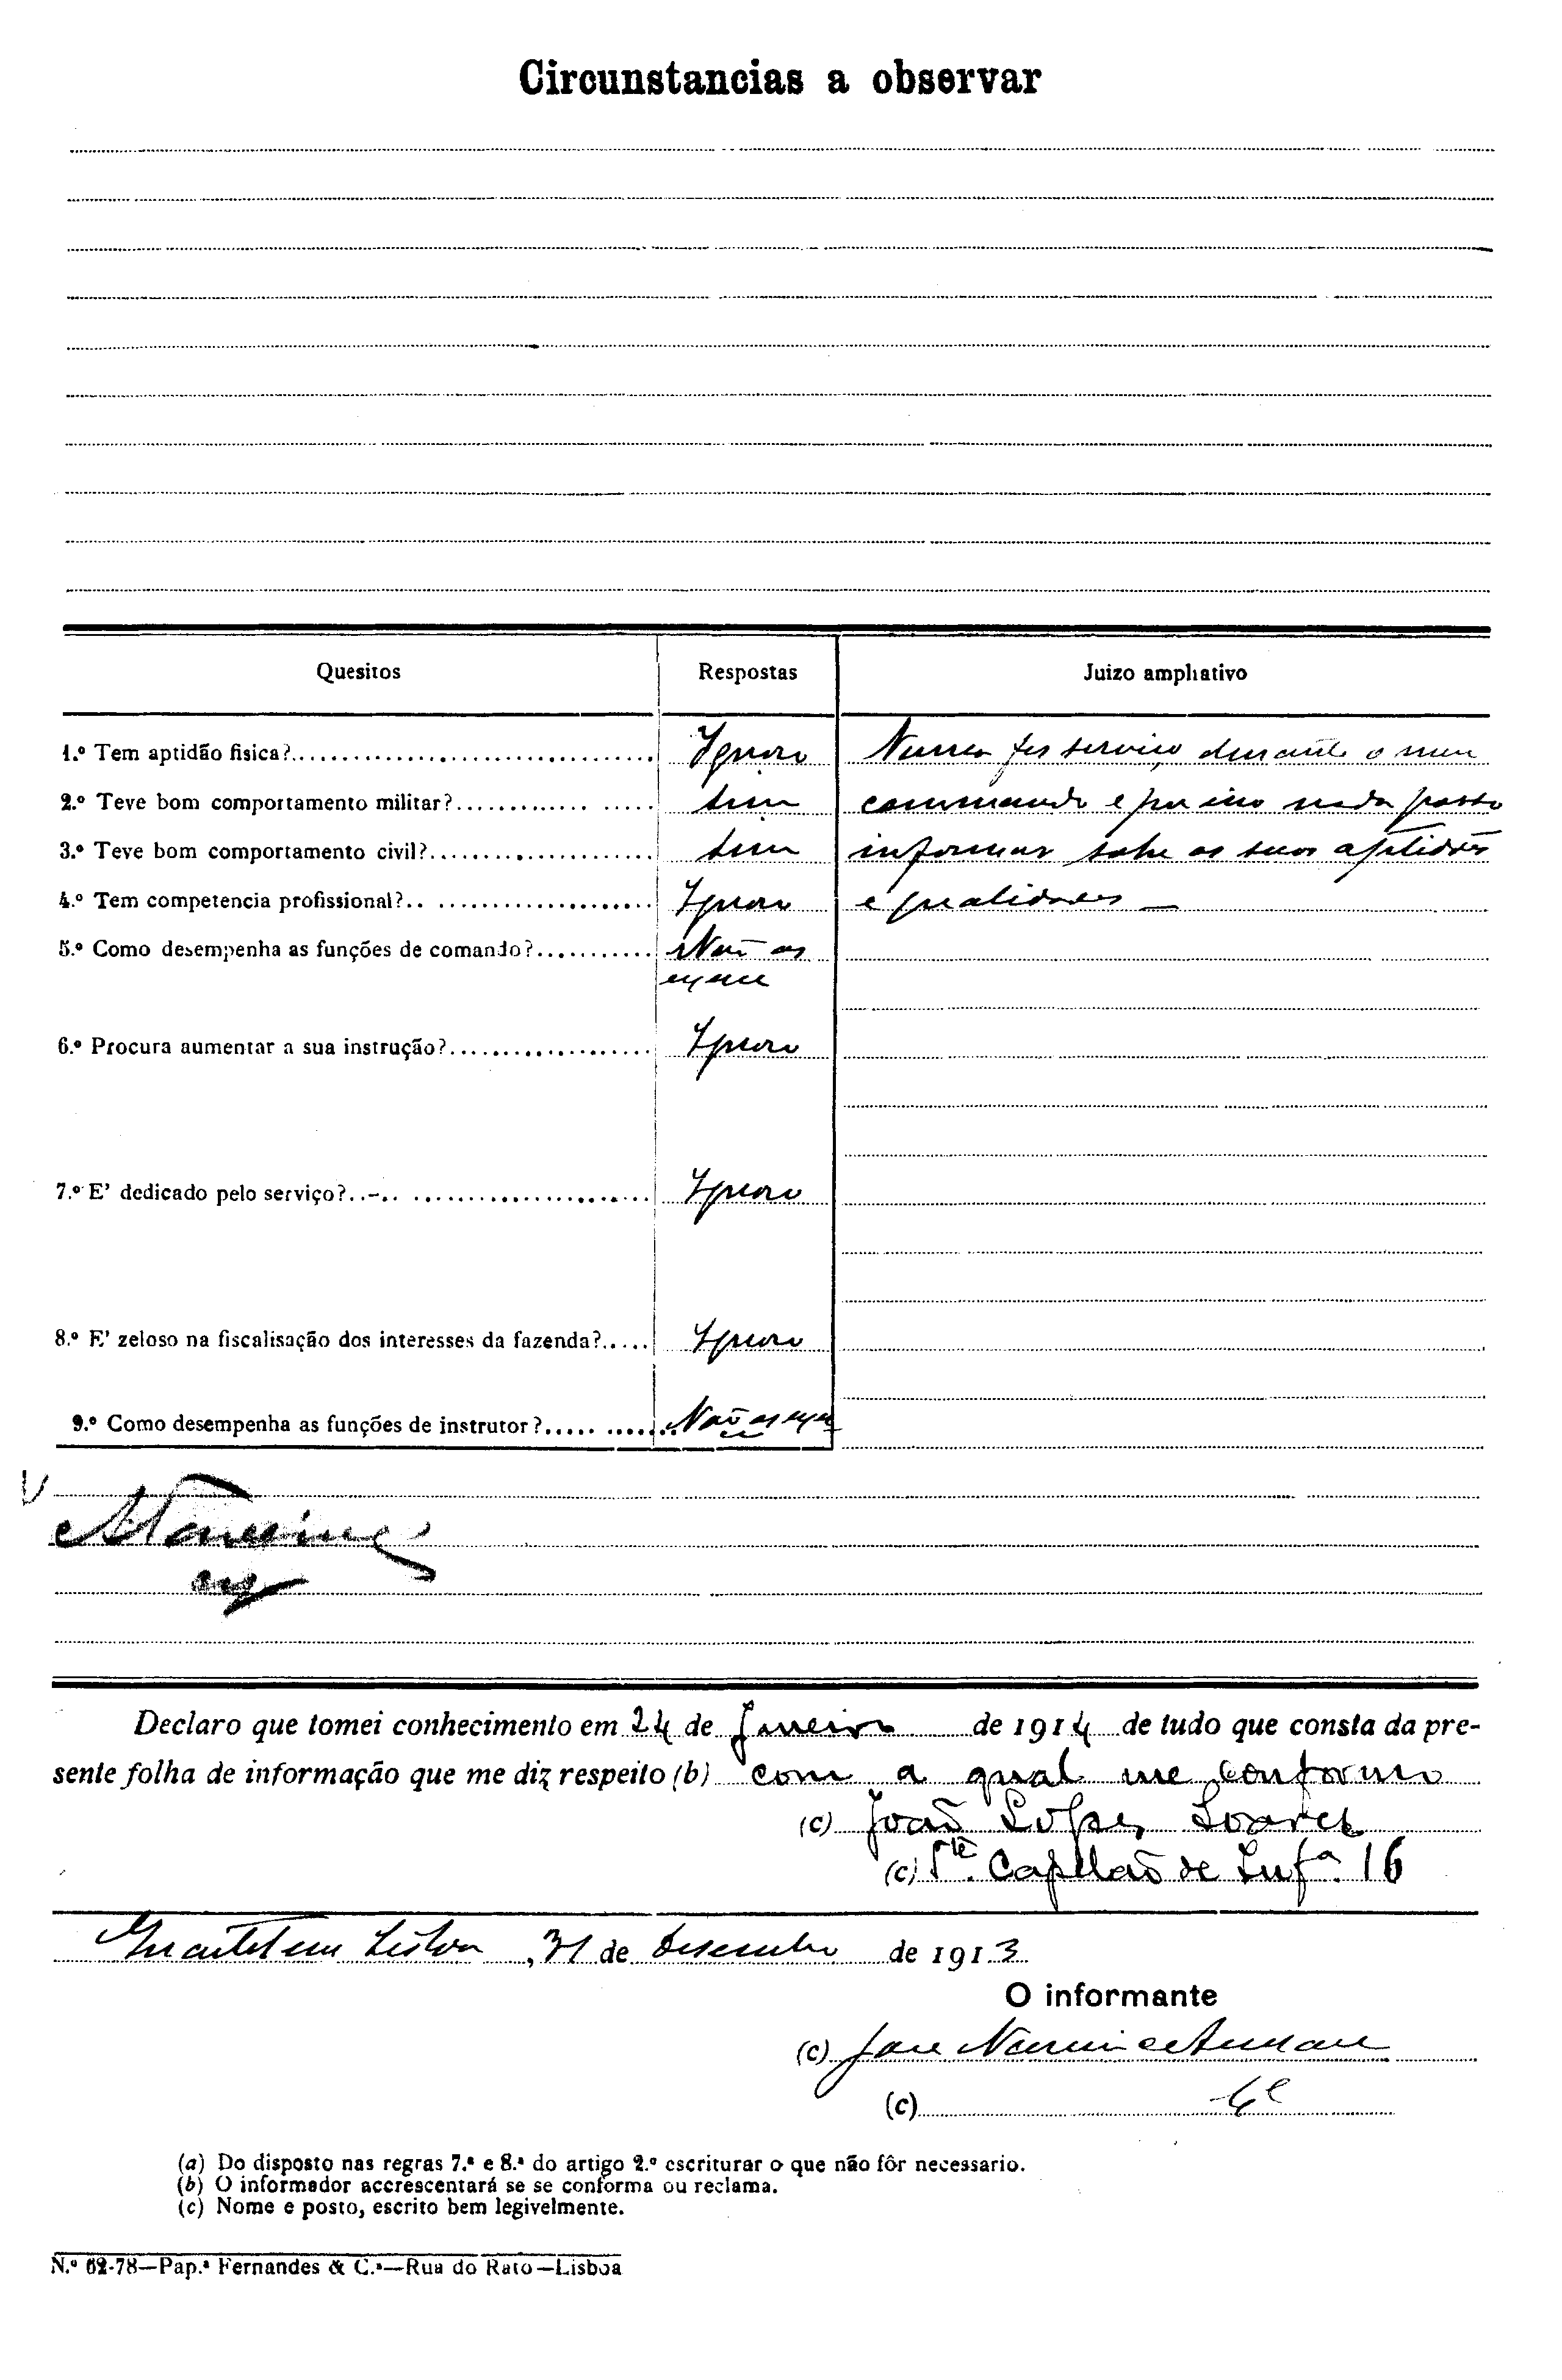 Circunstancias a observar
Quesitos Respostas Juizo ampliativo
1.º Tem aptidão fisica? Ignoro Nunca fez serviço durante o meu
2.º Teve bom comportamento militar? Sim commando e por isso nada posso
3.º Teve bom comportamento civil? Sim informar sobre as suas aptidões
4.º Tem competencia profissional? Ignoro e qualidades —
5.º Como desempenha as funções de comando? Não as
exerce
6.º Procura aumentar a sua instrução? Ignoro
7.º E' dedicado pelo serviço? Ignoro
8.º E' zeloso na fiscalisação dos interesses da fazenda? Ignoro
9.º Como desempenha as funções de instrutor? Não as exerce
Declaro que tomei conhecimento em 24 de Janeiro de 1914 de tudo que consta da pre-
sente folha de informação que me diz respeito (b) com a qual me conformo
(c) João Lopes Soares
(c) Capellão de Inf.ª 16
Quartel em Lisboa, 31 de Dezembro de 1913
O informante
(c) José
(c)
(a) Do disposto nas regras 7.ª e 8.ª do artigo 2.º escriturar o que não fôr necessario.
(b) O informador accrescentará se se conforma ou reclama.
(c) Nome e posto, escrito bem legivelmente.
N.º 62-78—Pap.ª Fernandes & C.ª—Rua do Rato—Lisboa